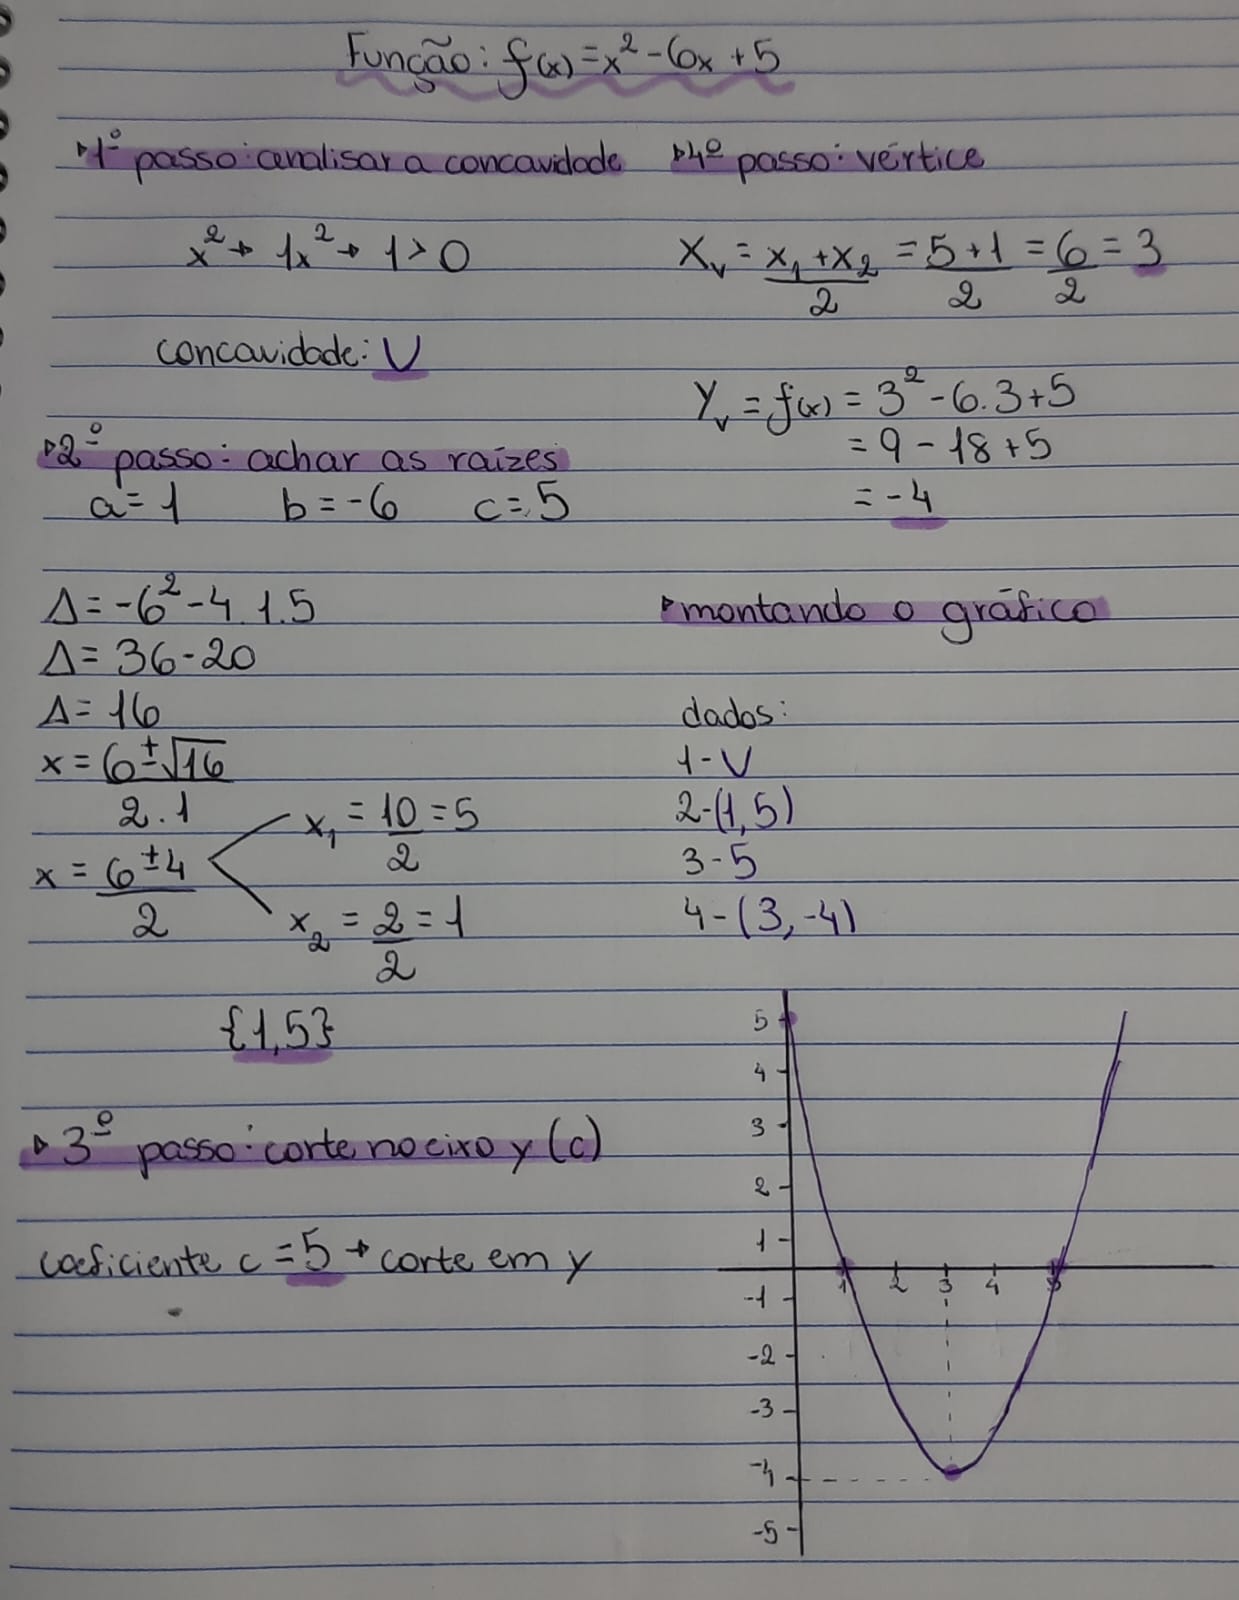 Função: f(x) = x² - 6x + 5
1º passo: analisar a concavidade
x² → 1x² → 1 > 0
concavidade: U
2º passo: achar as raízes
a = 1 b = -6 c = 5
Δ = -6² - 4.1.5
Δ = 36 - 20
Δ = 16
x = 6 ± √16
2.1
x = 6 ± 4
2
x₁ = 10 = 5
2
x₂ = 2 = 1
2
{1,5}
3º passo: corte no eixo y (c)
coeficiente c = 5 → corte em y
4º passo: vértice
Xᵥ = x₁ + x₂ = 5 + 1 = 6 = 3
2 2 2
Yᵥ = f(x) = 3² - 6.3 + 5
= 9 - 18 + 5
= -4
montando o gráfico
dados:
1 - U
2 - (1,5)
3 - 5
4 - (3, -4)
5
4
3
2
1
1 2 3 4 5
-1
-2
-3
-4
-5